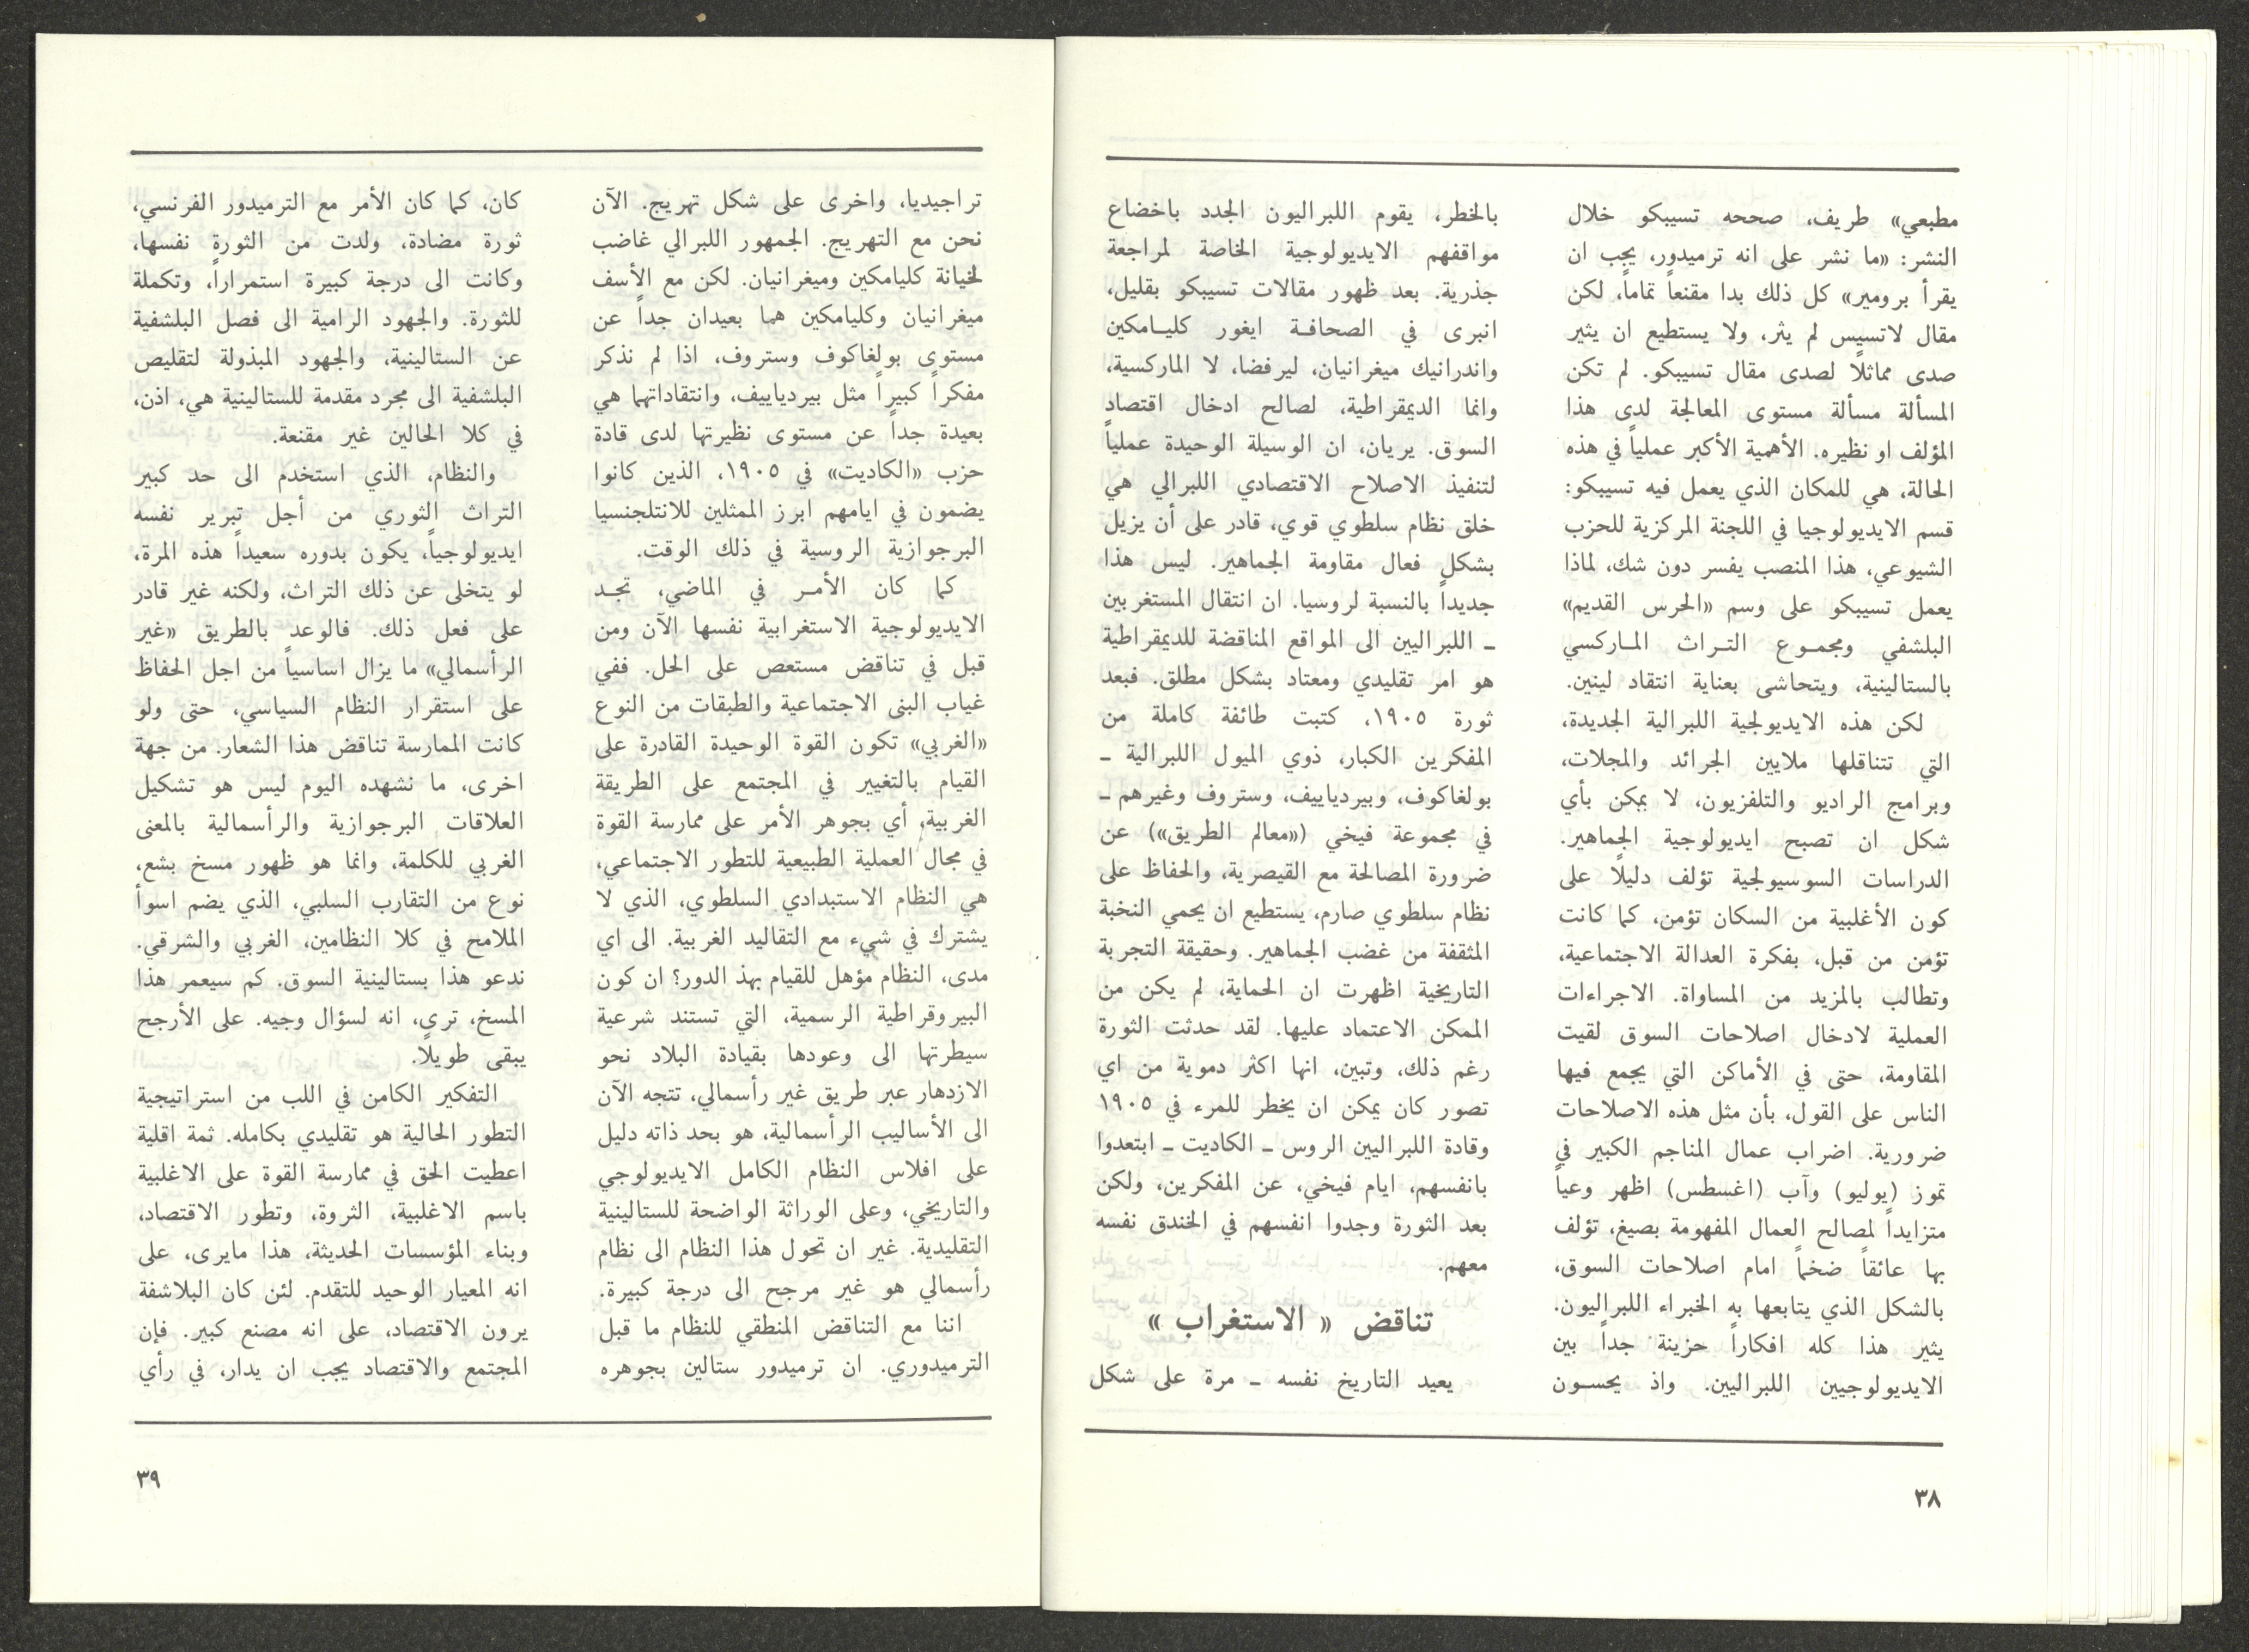 مطبعي» طريف، صححه تسيبكو خلال
النشر: «ما نشر على انه ترميدور، يجب ان
يقرأ برومير» كل ذلك بدا مقنعاً تماماً، لكن
مقال لاتسيس لم يثر، ولا يستطيع ان يثير
صدى مماثلاً لصدى مقال تسيبكو. لم تكن
المسألة مسألة مستوى المعالجة لدى هذا
المؤلف او نظيره. الأهمية الأكبر عملياً في هذه
الحالة، هي للمكان الذي يعمل فيه تسيبكو:
قسم الايديولوجيا في اللجنة المركزية للحزب
الشيوعي، هذا المنصب يفسر دون شك، لماذا
يعمل تسيبكو على وسم «الحرس القديم»
البلشفي ومجمـوع التـراث المـاركسي
بالستالينية، ويتحاشى بعناية انتقاد لينين.
لكن هذه الايديولجية اللبرالية الجديدة،
التي تتناقلها ملايين الجرائد والمجلات،
وبرامج الراديو والتلفزيون، لا يمكن بأي
شكل ان تصبح ايديولوجية الجماهير.
الدراسات السوسيولجية تؤلف دليلاً على
كون الأغلبية من السكان تؤمن، كما كانت
تؤمن من قبل، بفكرة العدالة الاجتماعية،
وتطالب بالمزيد من المساواة. الاجراءات
العملية لادخال اصلاحات السوق لقيت
المقاومة، حتى في الأماكن التي يجمع فيها
الناس على القول، بأن مثل هذه الاصلاحات
ضرورية. اضراب عمال المناجم الكبير في
تموز (يوليو) وآب (اغسطس) اظهر وعياً
متزايداً لمصالح العمال المفهومة بصيغ، تؤلف
بها عائقاً ضخماً امام اصلاحات السوق،
بالشكل الذي يتابعها به الخبراء اللبراليون.
يثير هذا كله افكاراً حزينة جداً بين
الايديولوجيين اللبراليين. واذ يحسـون
بالخطر، يقوم اللبراليون الجدد باخضاع
مواقفهم الايديولوجية الخاصة لمراجعة
جذرية. بعد ظهور مقالات تسيبكو بقليل،
انبرى في الصحافـة ايغور كليـامكين
واندرانيك ميغرانيان، ليرفضا، لا الماركسية،
وانما الديمقراطية، لصالح ادخال اقتصاد
السوق. يريان، ان الوسيلة الوحيدة عملياً
لتنفيذ الاصلاح الاقتصادي اللبرالي هي
خلق نظام سلطوي قوي، قادر على أن يزيل
بشكل فعال مقاومة الجماهير. ليس هذا
جديداً بالنسبة لروسيا. ان انتقال المستغربين
ـ اللبراليين الى المواقع المناقضة للديمقراطية
هو امر تقليدي ومعتاد بشكل مطلق. فبعد
ثورة ١٩٠٥، كتبت طائفة كاملة من
المفكرين الكبار، ذوي الميول اللبرالية ـ
بولغاكوف، وبيردياييف، وستروف وغيرهم ـ
في مجموعة فيخي («معالم الطريق») عن
ضرورة المصالحة مع القيصرية، والحفاظ على
نظام سلطوي صارم، يستطيع ان يحمي النخبة
المثقفة من غضب الجماهير. وحقيقة التجربة
التاريخية اظهرت ان الحماية، لم يكن من
الممكن الاعتماد عليها. لقد حدثت الثورة
رغم ذلك، وتبين، انها اكثر دموية من اي
تصور كان يمكن ان يخطر للمرء في ١٩٠٥
وقادة اللبراليين الروس ـ الكاديت ـ ابتعدوا
بانفسهم، ايام فيخي، عن المفكرين، ولكن
بعد الثورة وجدوا انفسهم في الخندق نفسه
معهم.
تناقض « الاستغراب »
يعيد التاريخ نفسه ـ مرة على شكل
٣٨
تراجيديا، واخرى على شكل تهريج. الآن
نحن مع التهريج. الجمهور اللبرالي غاضب
لخيانة كليامكين وميغرانيان. لكن مع الأسف
ميغرانيان وكليامكين هما بعيدان جداً عن
مستوى بولغاكوف وستروف، اذا لم نذكر
مفكراً كبيراً مثل بيردياييف، وانتقاداتهما هي
بعيدة جداً عن مستوى نظيرتها لدى قادة
حزب «الكاديت» في ١٩٠٥، الذين كانوا
يضمون في ايامهم ابرز الممثلين للانتلجنسيا
البرجوازية الروسية في ذلك الوقت.
كما كان الأمـر في الماضي، تجـد
الايديولوجية الاستغرابية نفسها الآن ومن
قبل في تناقض مستعص على الحل. ففي
غياب البنى الاجتماعية والطبقات من النوع
«الغربي» تكون القوة الوحيدة القادرة على
القيام بالتغيير في المجتمع على الطريقة
الغربية، أي بجوهر الأمر على ممارسة القوة
في مجال العملية الطبيعية للتطور الاجتماعي،
هي النظام الاستبدادي السلطوي، الذي لا
يشترك في شيء مع التقاليد الغربية. الى اي
مدى، النظام مؤهل للقيام بهذ الدور؟ ان كون
البيروقراطية الرسمية، التي تستند شرعية
سيطرتها الى وعودها بقيادة البلاد نحو
الازدهار عبر طريق غير رأسمالي، تتجه الآن
الى الأساليب الرأسمالية، هو بحد ذاته دليل
على افلاس النظام الكامل الايديولوجي
والتاريخي، وعلى الوراثة الواضحة للستالينية
التقليدية. غير ان تحول هذا النظام الى نظام
رأسمالي هو غير مرجح الى درجة كبيرة.
اننا مع التناقض المنطقي للنظام ما قبل
الترميدوري. ان ترميدور ستالين بجوهره
كان، كما كان الأمر مع الترميدور الفرنسي،
ثورة مضادة، ولدت من الثورة نفسها،
وكانت الى درجة كبيرة استمراراً، وتكملة
للثورة. والجهود الرامية الى فصل البلشفية
عن الستالينية، والجهود المبذولة لتقليص
البلشفية الى مجرد مقدمة للستالينية هي، اذن،
في كلا الحالين غير مقنعة.
والنظام، الذي استخدم الى حد كبير
التراث الثوري من أجل تبرير نفسه
ايديولوجياً، يكون بدوره سعيداً هذه المرة،
لو يتخلى عن ذلك التراث، ولكنه غير قادر
على فعل ذلك. فالوعد بالطريق «غير
الرأسمالي» ما يزال اساسياً من اجل الحفاظ
على استقرار النظام السياسي، حتى ولو
كانت الممارسة تناقض هذا الشعار. من جهة
اخرى، ما نشهده اليوم ليس هو تشكيل
العلاقات البرجوازية والرأسمالية بالمعنى
الغربي للكلمة، وانما هو ظهور مسخ بشع،
نوع من التقارب السلبي، الذي يضم اسوأ
الملامح في كلا النظامين، الغربي والشرقي.
ندعو هذا بستالينية السوق. كم سيعمر هذا
المسخ، ترى، انه لسؤال وجيه. على الأرجح
يبقى طويلاً.
التفكير الكامن في اللب من استراتيجية
التطور الحالية هو تقليدي بكامله. ثمة اقلية
اعطيت الحق في ممارسة القوة على الاغلبية
باسم الاغلبية، الثروة، وتطور الاقتصاد،
وبناء المؤسسات الحديثة، هذا مايرى، على
انه المعيار الوحيد للتقدم. لئن كان البلاشفة
يرون الاقتصاد، على انه مصنع كبير. فإن
المجتمع والاقتصاد يجب ان يدار، في رأي
٣٩